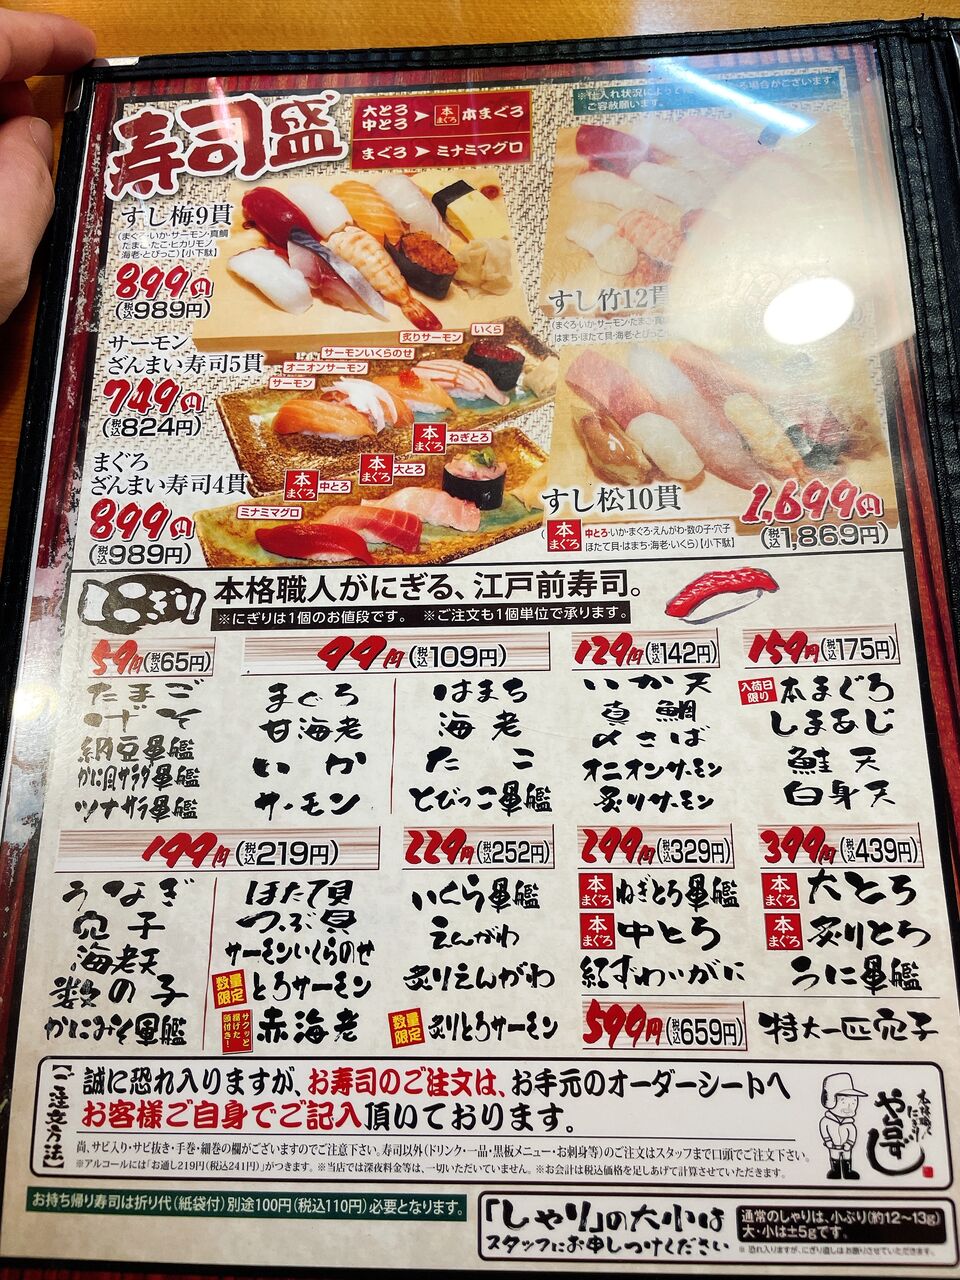 寿司盛
大とろ
中とろ
本まぐろ
本まぐろ
まぐろ
ミナミマグロ
※仕入れ状況によっ
場合がございます。
ご容赦願います。
すし梅9貫
(まぐろ・いか・サーモン・真鯛
たまご・たこ・ヒカリモノ
海老・とびっこ)【小下駄】
899円
(税込989円)
サーモン
ざんまい寿司5貫
749円
(税込824円)
サーモン
オニオンサーモン
サーモンいくらのせ
炙りサーモン
いくら
まぐろ
ざんまい寿司4貫
899円
(税込989円)
ミナミマグロ
本まぐろ 中とろ
本まぐろ 大とろ
本まぐろ ねぎとろ
すし竹12貫
(まぐろ・いか・サーモン・たまご・真
はまち・ほたて貝・海老・とびっこ
すし松10貫
本まぐろ 中とろ・いか・まぐろ・えんがわ・数の子・穴子
ほたて貝・はまち・海老・いくら)【小下駄】
1,699円
(税込1,869円)
にぎり
本格職人がにぎる、江戸前寿司。
※にぎりは1個のお値段です。 ※ご注文も1個単位で承ります。
59円(税込65円)
たまご
げそ
納豆軍艦
かに風サラダ軍艦
ツナサラダ軍艦
99円(税込109円)
まぐろ
甘海老
いか
サーモン
はまち
海老
たこ
とびっこ軍艦
129円(税込142円)
いか天
真鯛
〆さば
オニオンサーモン
炙りサーモン
159円(税込175円)
入荷日限り 本まぐろ
しまあじ
鮭天
白身天
199円(税込219円)
うなぎ
穴子
海老天
数の子
かにみそ軍艦
ほたて貝
つぶ貝
サーモンいくらのせ
数量限定 とろサーモン
サクッと揚げた頭付き! 赤海老
229円(税込252円)
いくら軍艦
えんがわ
炙りえんがわ
数量限定 炙りとろサーモン
299円(税込329円)
本まぐろ ねぎとろ軍艦
本まぐろ 中とろ
紅ずわいがに
399円(税込439円)
本まぐろ 大とろ
本まぐろ 炙りとろ
うに軍艦
599円(税込659円)
特大一匹穴子
【ご注文方法】
誠に恐れ入りますが、お寿司のご注文は、お手元のオーダーシートへ
お客様ご自身でご記入頂いております。
尚、サビ入り・サビ抜き・手巻・細巻の欄がございますのでご注意下さい。寿司以外(ドリンク・一品・黒板メニュー・お刺身等)のご注文はスタッフまで口頭でご注文下さい。
※アルコールには「お通し219円(税込241円)」がつきます。※当店では深夜料金等は、一切いただいていません。※お会計は税込価格を足しあげて計算させていただきます。
本格職人にぎり
や台ずし
お持ち帰り寿司は折り代(紙袋付)別途100円(税込110円)必要となります。
「しゃり」の大小は
スタッフにお申しつけください
通常のしゃりは、小ぶり(約12〜13g)
大・小は±5gです。
※ 恐れ入りますが、にぎり直しはお断りさせていただきます。